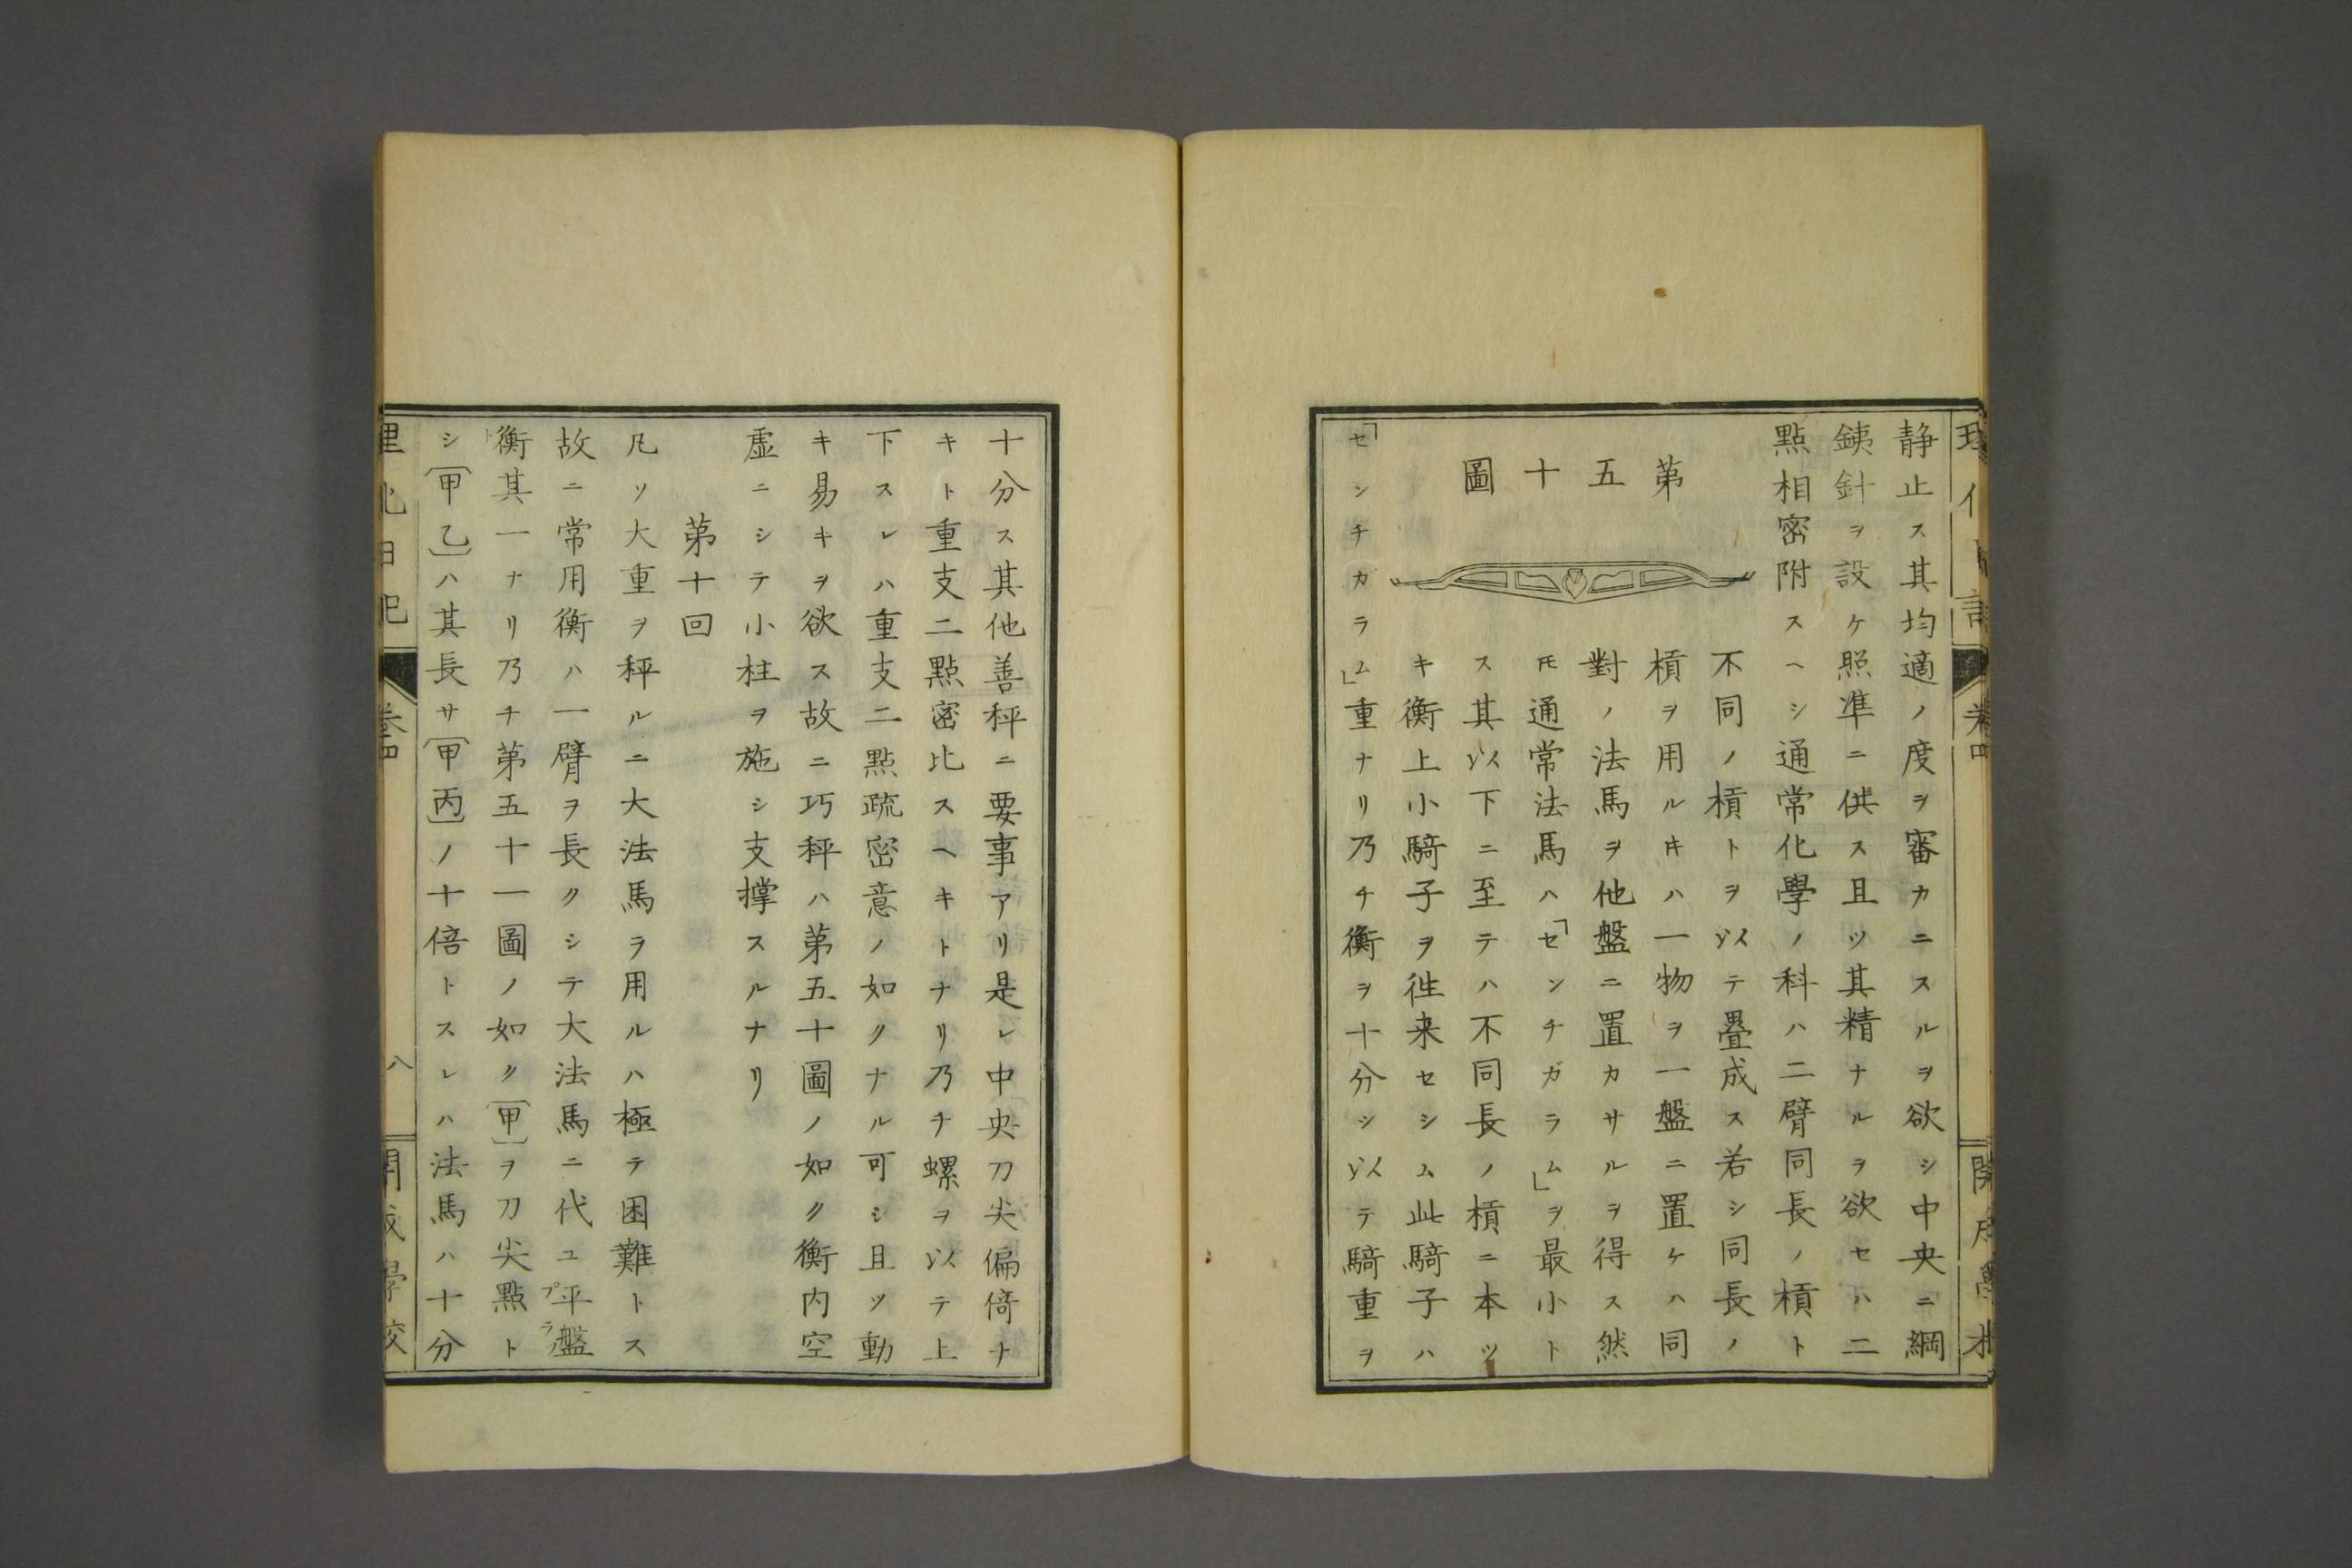 静止ス其均適ノ度ヲ審カニスルヲ欲シ中央ニ綱
銕針ヲ設ケ照準ニ供ス且ツ其精ナルヲ欲セハ二
點相密附スヘシ通常化學ノ科ハ二臂同長ノ槓ト
不同ノ槓トヲ以テ疊成ス若シ同長ノ
槓ヲ用ルキハ一物ヲ一盤ニ置ケハ同
對ノ法馬ヲ他盤ニ置カサルヲ得ス然
𪜈通常法馬ハ「センチガラム」ヲ最小ト
ス其以下ニ至テハ不同長ノ槓ニ本ツ
キ衡上小騎子ヲ徃来セシム此騎子ハ
第五十圖
「センチガラム」重ナリ乃チ衡ヲ十分シ以テ騎重ヲ
十分ス其他善秤ニ要事アリ是レ中央刀尖偏倚ナ
キト重支二點密比スヘキトナリ乃チ螺ヲ以テ上
下スレハ重支二點疏密意ノ如クナル可シ且ツ動
キ易キヲ欲ス故ニ巧秤ハ第五十圖ノ如ク衡内空
虚ニシテ小柱ヲ施シ支撑スルナリ
第十回
凡ソ大重ヲ秤ルニ大法馬ヲ用ルハ極テ困難トス
故ニ常用衡ハ一臂ヲ長クシテ大法馬ニ代ユ平盤
衡其一ナリ乃チ第五十一圖ノ如ク〔甲〕ヲ刀尖點ト
シ〔甲乙〕ハ其長サ〔甲丙〕ノ十倍トスレハ法馬ハ十分
八